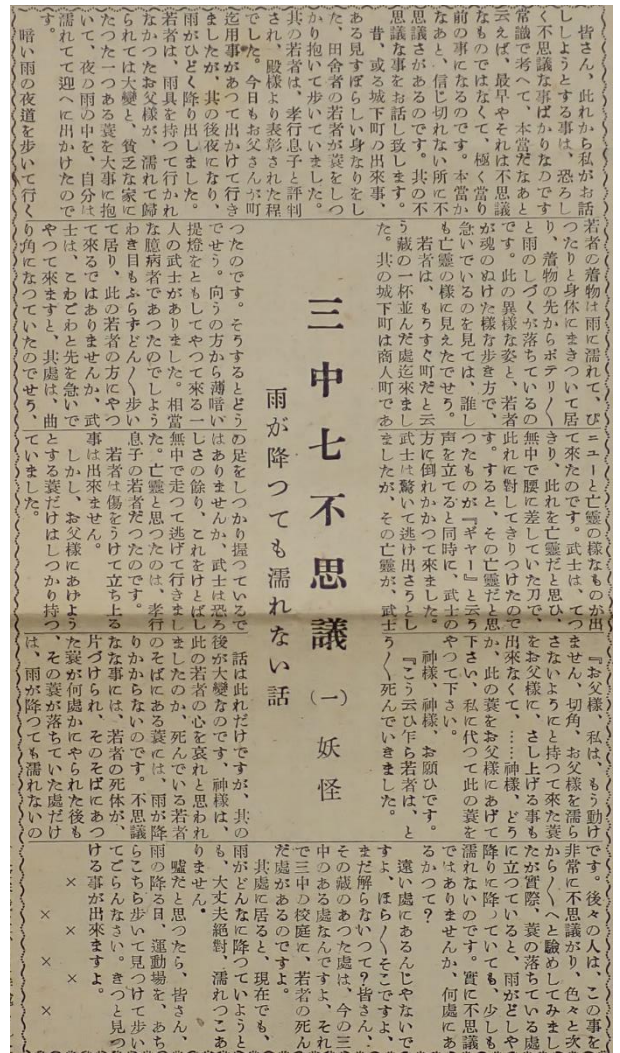 皆さん、此れから私がお話
ししようとする事は、恐ろし
く不思議な事ばかりなのです
常識で考へて、本當だなあと
云えば、最早やそれは不思議
なものではなくて、極く當り
前の事になるのです。本當か
なあと、信じ切れない所に不
思議さがあるのです。其の不
思議な事をお話し致します。
昔、或る城下町の出來事、
ある見すぼらしい身なりをし
た、田舎者の若者が蓑をしつ
かり抱いて歩いていました。
其の若者は、孝行息子と評判
され、殿様より表彰された程
でした。今日もお父さんが町
迄用事があつて出かけて行き
ましたが、其の後夜になり、
雨がひどく降り出しました。
若者は、雨具を持つて行かれ
なかつたお父様が、濡れて歸
られては大變と、貧乏な家に
たつた一つある蓑を大事に抱
いて、夜の雨の中を、自分は
濡れてて迎へに出かけたので
暗い雨の夜道を歩いて行く
若者の着物は雨に濡れて、び
つたりと身体にまきついて居
り、着物の先からポテリ〳〵
と雨のしづくが落ちているの
です。此の異様な姿と、若者
が魂のぬけた様な歩き方で、
急いでいるのを見ては、誰し
も亡靈の様に見えたでせう。
若者は、もうすぐ町だと云
う藏の一杯並んだ處迄來まし
た。其の城下町は商人町であ
三中七不思議(一) 妖怪
雨が降つても濡れない話
つたのです。そうするとどう
でせう。向うの方から薄暗い
提燈をともしてやつて來る一
人の武士がありました。相當
な臆病者であつたのでしよう
わき目もふらずどん〳〵歩い
て居り、此の若者の方にやつ
て來るではありませんか、武
士は、こわごわと先を急いで
やつて來ますと、其處は、曲
り角になつていたのでせう、
ニューと亡靈の様なものが出
て來たのです。武士は、てつ
きり、此れを亡靈だと思ひ、
無中で腰に差していた刀で、
此れに對してきりつけたので
す。すると、その亡靈だと思
つたものが『ギヤー』と云う
声を立てると同時に、武士の
方に倒れかかつて來ました。
武士は驚いて逃げ出さうとし
ましたが、その亡靈が、武士
の足をしつかり握つているで
はありませんか、武士は恐ろ
しさの餘り、これをけとばし
無中で走つて逃げて行きまし
た。亡靈と思つたのは、孝行
息子の若者だつたのです。
若者は傷をうけて立ち上る
事は出來ません。
しかし、お父様にあげよう
とする蓑だけはしつかり持つ
ていました。
『お父様、私は、もう動け
ません、切角、お父様を濡ら
さないようにと持つて來た蓑
をお父様に、さし上げる事も
出來なくて、……神様、どう
か、此の蓑をお父様にあげて
下さい、私に代つて此の蓑を
やつて下さい。
神様、神様、お願ひです。
『こう云ひ乍ら若者は、と
う〳〵死んでいきました。
話は此れだけですが、其の
後が大變なのです、神様は、
此の若者の心を哀れと思われ
ましたのか、死んでいる若者
のそばにある蓑には、雨が降
りかからないのです。不思議
な事には、若者の死体が、
片づけられ、そのそばにあつ
た蓑が何處かにやられた後も
、その蓑が落ちていた處だけ
は、雨が降つても濡れないの
です。後々の人は、この事を
非常に不思議がり、色々と次
から〳〵へと驗めしてみまし
たが實際、蓑の落ちている處
に立つていると、雨がどしや
降りに降つていても、少しも
濡れないのです。實に不思議
ではありませんか、何處にあ
るかつて?
遠い處にあるんじやないで
すよ、ほら〳〵そこですよ、
まだ解らないつて?皆さん、
その藏のあつた處は、今の三
中のある處なんですよ、それ
で三中の校庭に、若者の死ん
だ處があるのですよ。
其處に居ると、現在でも、
雨がどんなに降つていようと
も、大丈夫絕對、濡れつこあ
りません。
嘘だと思つたら、皆さん、
雨の降る日、運動場を、あち
らこちら歩いて見つけて歩い
てごらんなさい。きつと見つ
ける事が出來ますよ。
× × × × ×